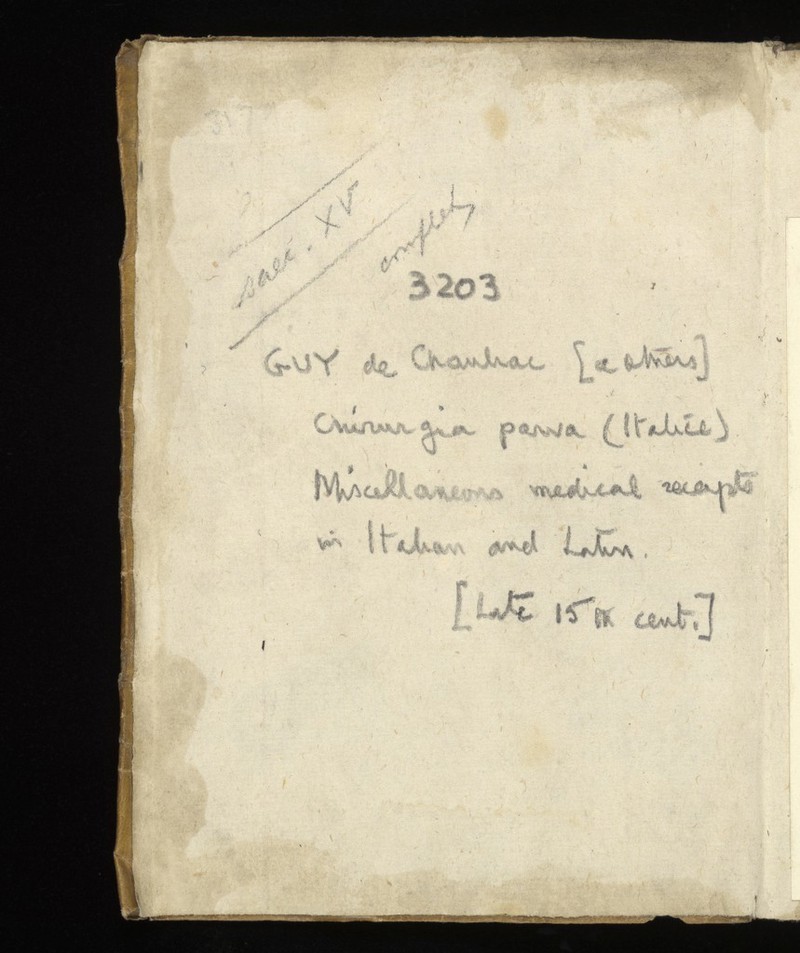 saec. XV
complet
3203
GUY de Chauliac [& others]
Chirurgia parva (Italicé)
Miscellaneous medical receipts
in Italian and Latin.
[Late 15th cent.]